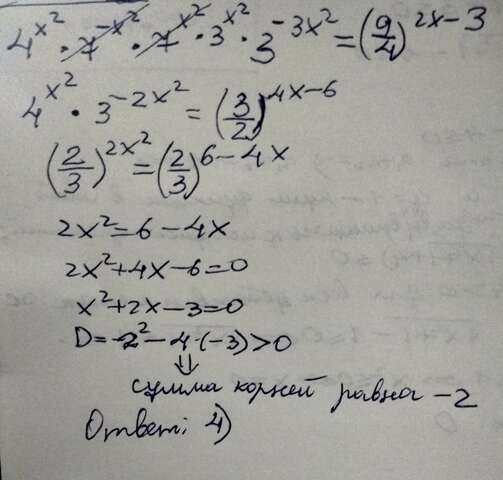 4^{x^2} · 7^{-x^2} · 7^{x^2} · 3^{x^2} · 3^{-3x^2} = (9/4)^{2x-3}
4^{x^2} · 3^{-2x^2} = (3/2)^{4x-6}
(2/3)^{2x^2} = (2/3)^{6-4x}
2x^2 = 6 - 4x
2x^2 + 4x - 6 = 0
x^2 + 2x - 3 = 0
D = 2^2 - 4 · (-3) > 0
⇓
сумма корней равна -2
Ответ: 4)